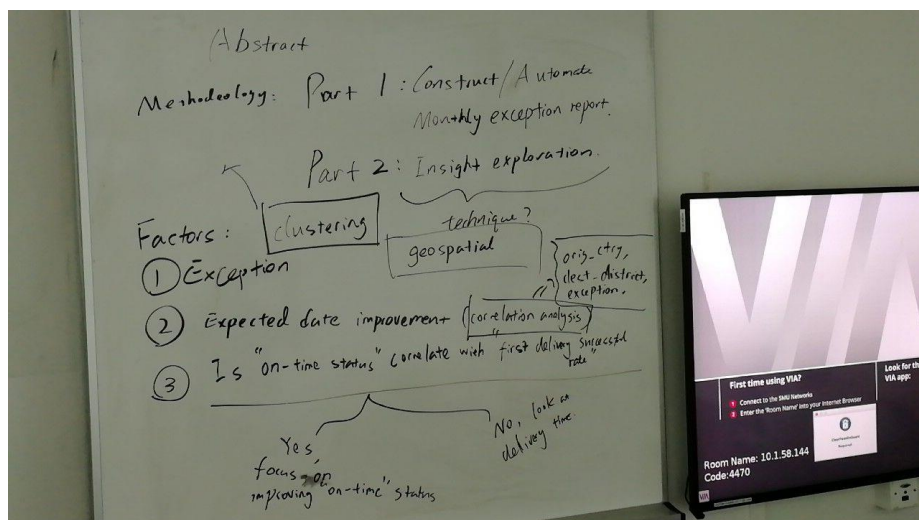 Abstract
Methodeology: Part 1: Construct/Automate
Monthly exception report.
Part 2: Insight exploration.
technique?
Factors: clustering
geospatial
orig_ctry,
dest_district,
exception.
① Exception
② Expected date improvement (correlation analysis)
③ Is "on-time status" correlate with "first delivery successful
rate"
Yes,
focus on
improving "on-time" status
No, look at
delivery time.
First time using VIA?
1 Connect to the SMU Networks
2 Enter the 'Room Name' into your Internet Browser
Look for th
VIA app:
Room Name: 10.1.58.144
Code:4470
VIA